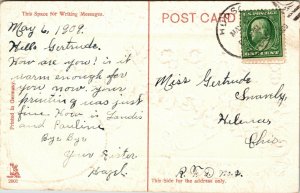 This Space for Writing Messages.
May 6, 1909.
Hello Gertrude.
How are you! is it
warm enough for
you now. Your
printing was just
fine. How is Landis
and Pauline
Bye Bye
Your Sister.
Hazel.
Printed in Germany
POST CARD
U.S. POSTAGE
ONE CENT
Miss Gertrude
Helena,
Ohio.
R.F.D. No. 2.
This Side for the address only.